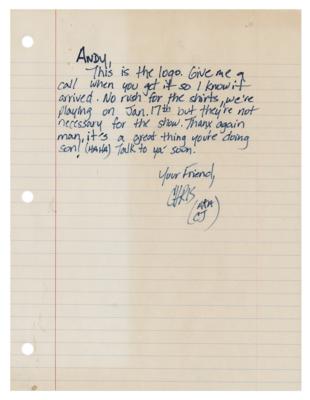 ANDY,
This is the logo. Give me a
call when you get it so I know it
arrived. No rush for the shirts, we're
playing on Jan. 17th but they're not
necessary for the show. Thanx again
man, it's a great thing you're doing
son! (HAHA) Talk to ya' soon.
Your Friend,
CHRIS
(AKA
CJ)